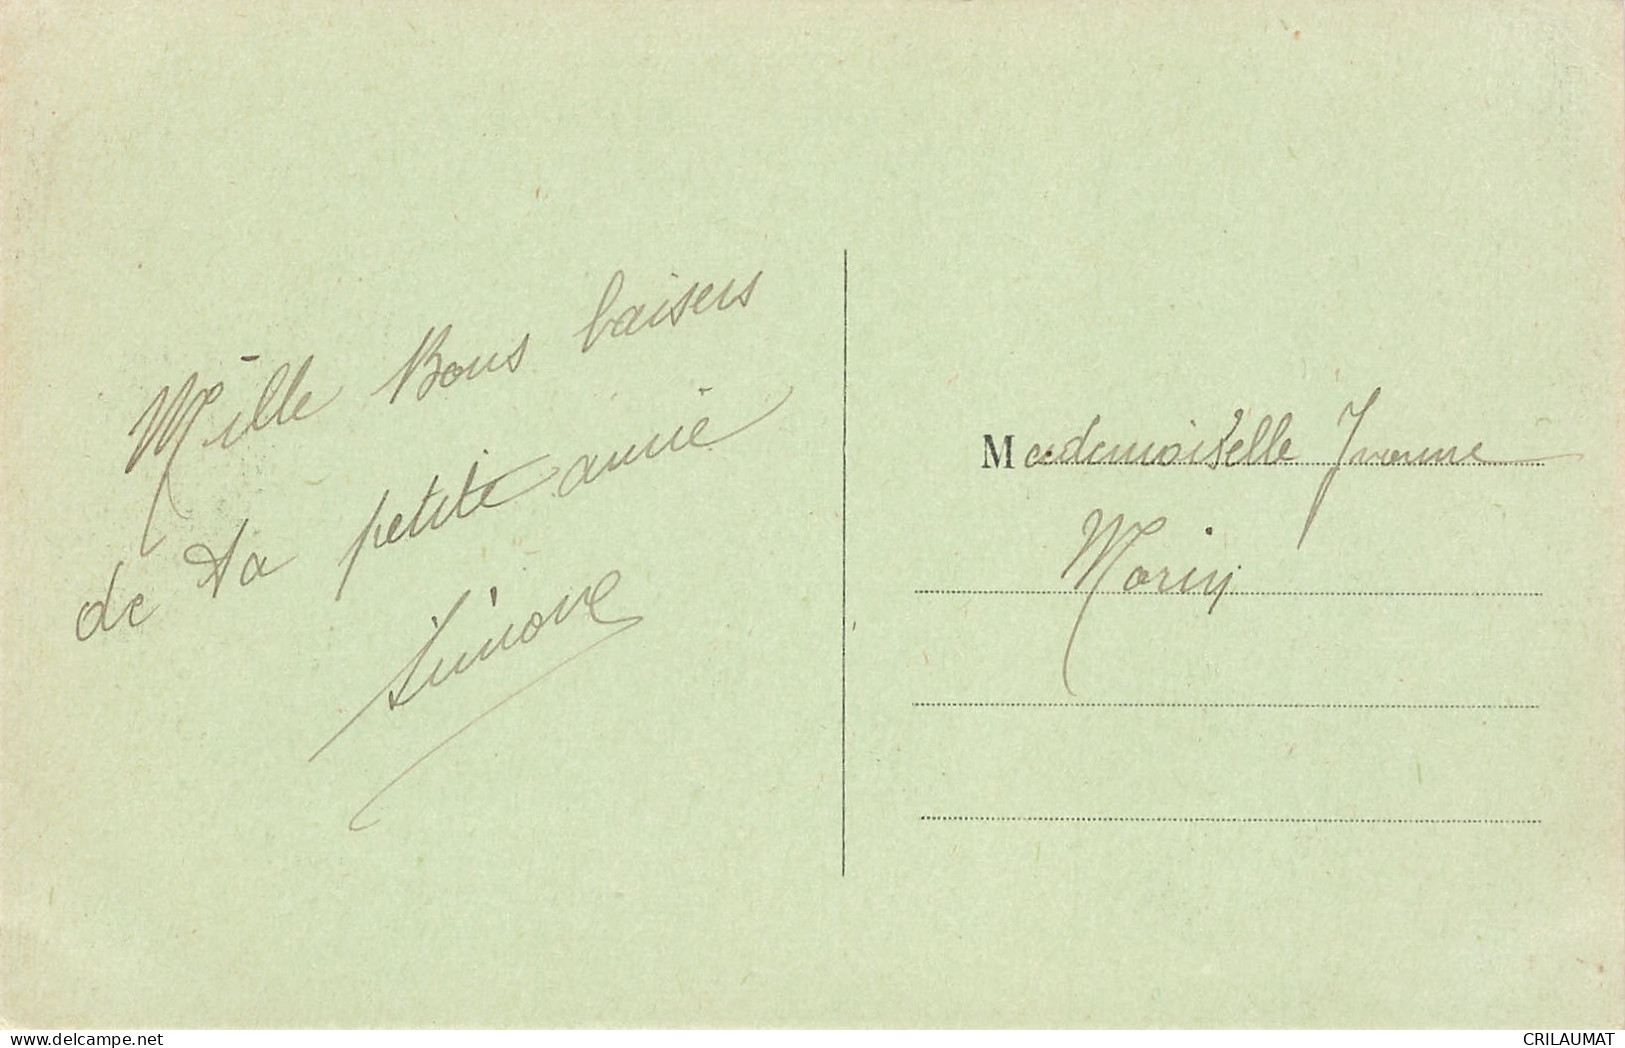 Mille Bons baisers
de ta petite amie
Simone
Mademoiselle Yvonne
Morin
www.delcampe.net
CRILAUMAT